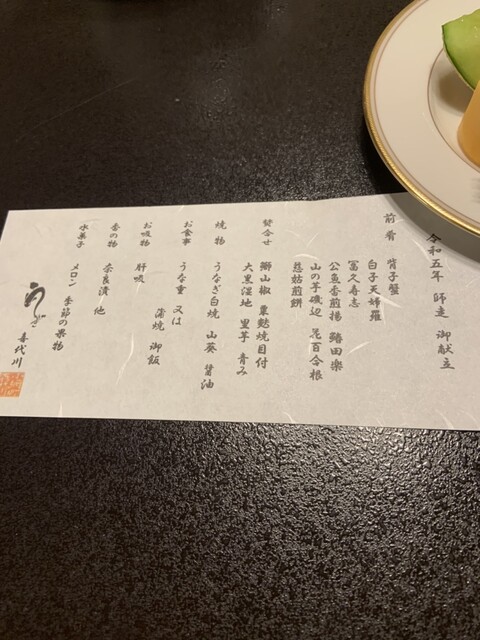 令和五年 師走 御献立
前肴 背子蟹
白子天婦羅
冨久寿志
公魚香煎揚 鶏田楽
山の芋磯辺 花百合根
慈姑煎餅
焚合せ 鰤山椒 粟麩焼目付
大黒湿地 里芋 青み
焼物 うなぎ白焼 山葵 醤油
お食事 うな重 又は
蒲焼 御飯
お吸物 肝吸
香の物 奈良漬 他
水菓子 メロン 季節の果物
うなぎ 喜代川